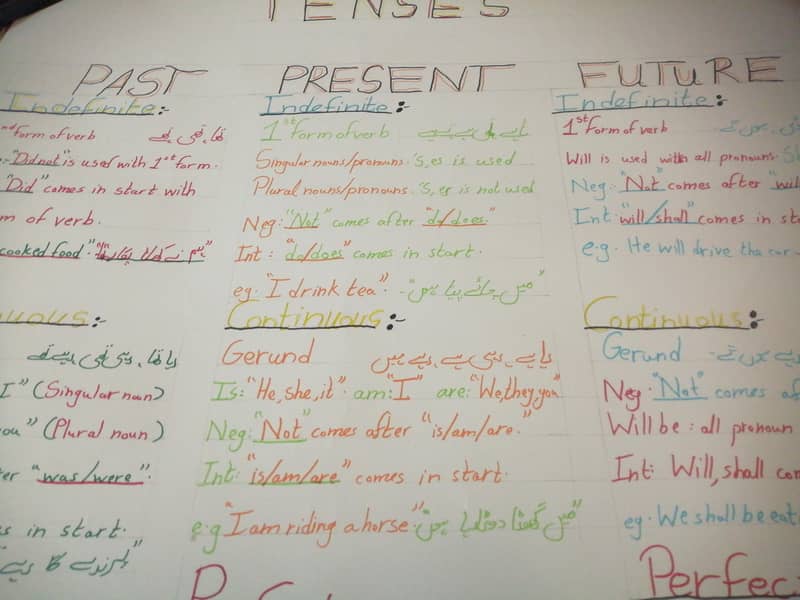 TENSES
PAST
Indefinite:-
form of verb تھا، تھی، تھے
"Did not" is used with 1st form.
"Did" comes in start with
m of verb.
cooked food."
uous:-
I" (Singular noun)
ou" (Plural noun)
er "was/were".
s in start.
PRESENT
Indefinite:-
1st form of verb
Singular nouns/pronouns s, es is used
Plural nouns/pronouns s, es is not used
Neg: "Not" comes after "do/does"
Int: "do/does" comes in start.
eg. "I drink tea". "میں چائے پیتا ہوں"
Continuous:-
Gerund رہا ہے، رہی ہے، رہے ہیں
Is: "He, she, it" am: "I" are: "We, they, you"
Neg: "Not" comes after "is/am/are."
Int: "is/am/are" comes in start.
e.g "I am riding a horse"
FUTURE
Indefinite:-
1st form of verb
Will is used with all pronouns.
Neg: "Not" comes after "wil
Int: "will/shall" comes in sta
e.g. He will drive the car
Continuous:-
Gerund
Neg. "Not" comes af
Will be: all pronoun
Int: Will, shall com
eg. We shall be eat
Perfec